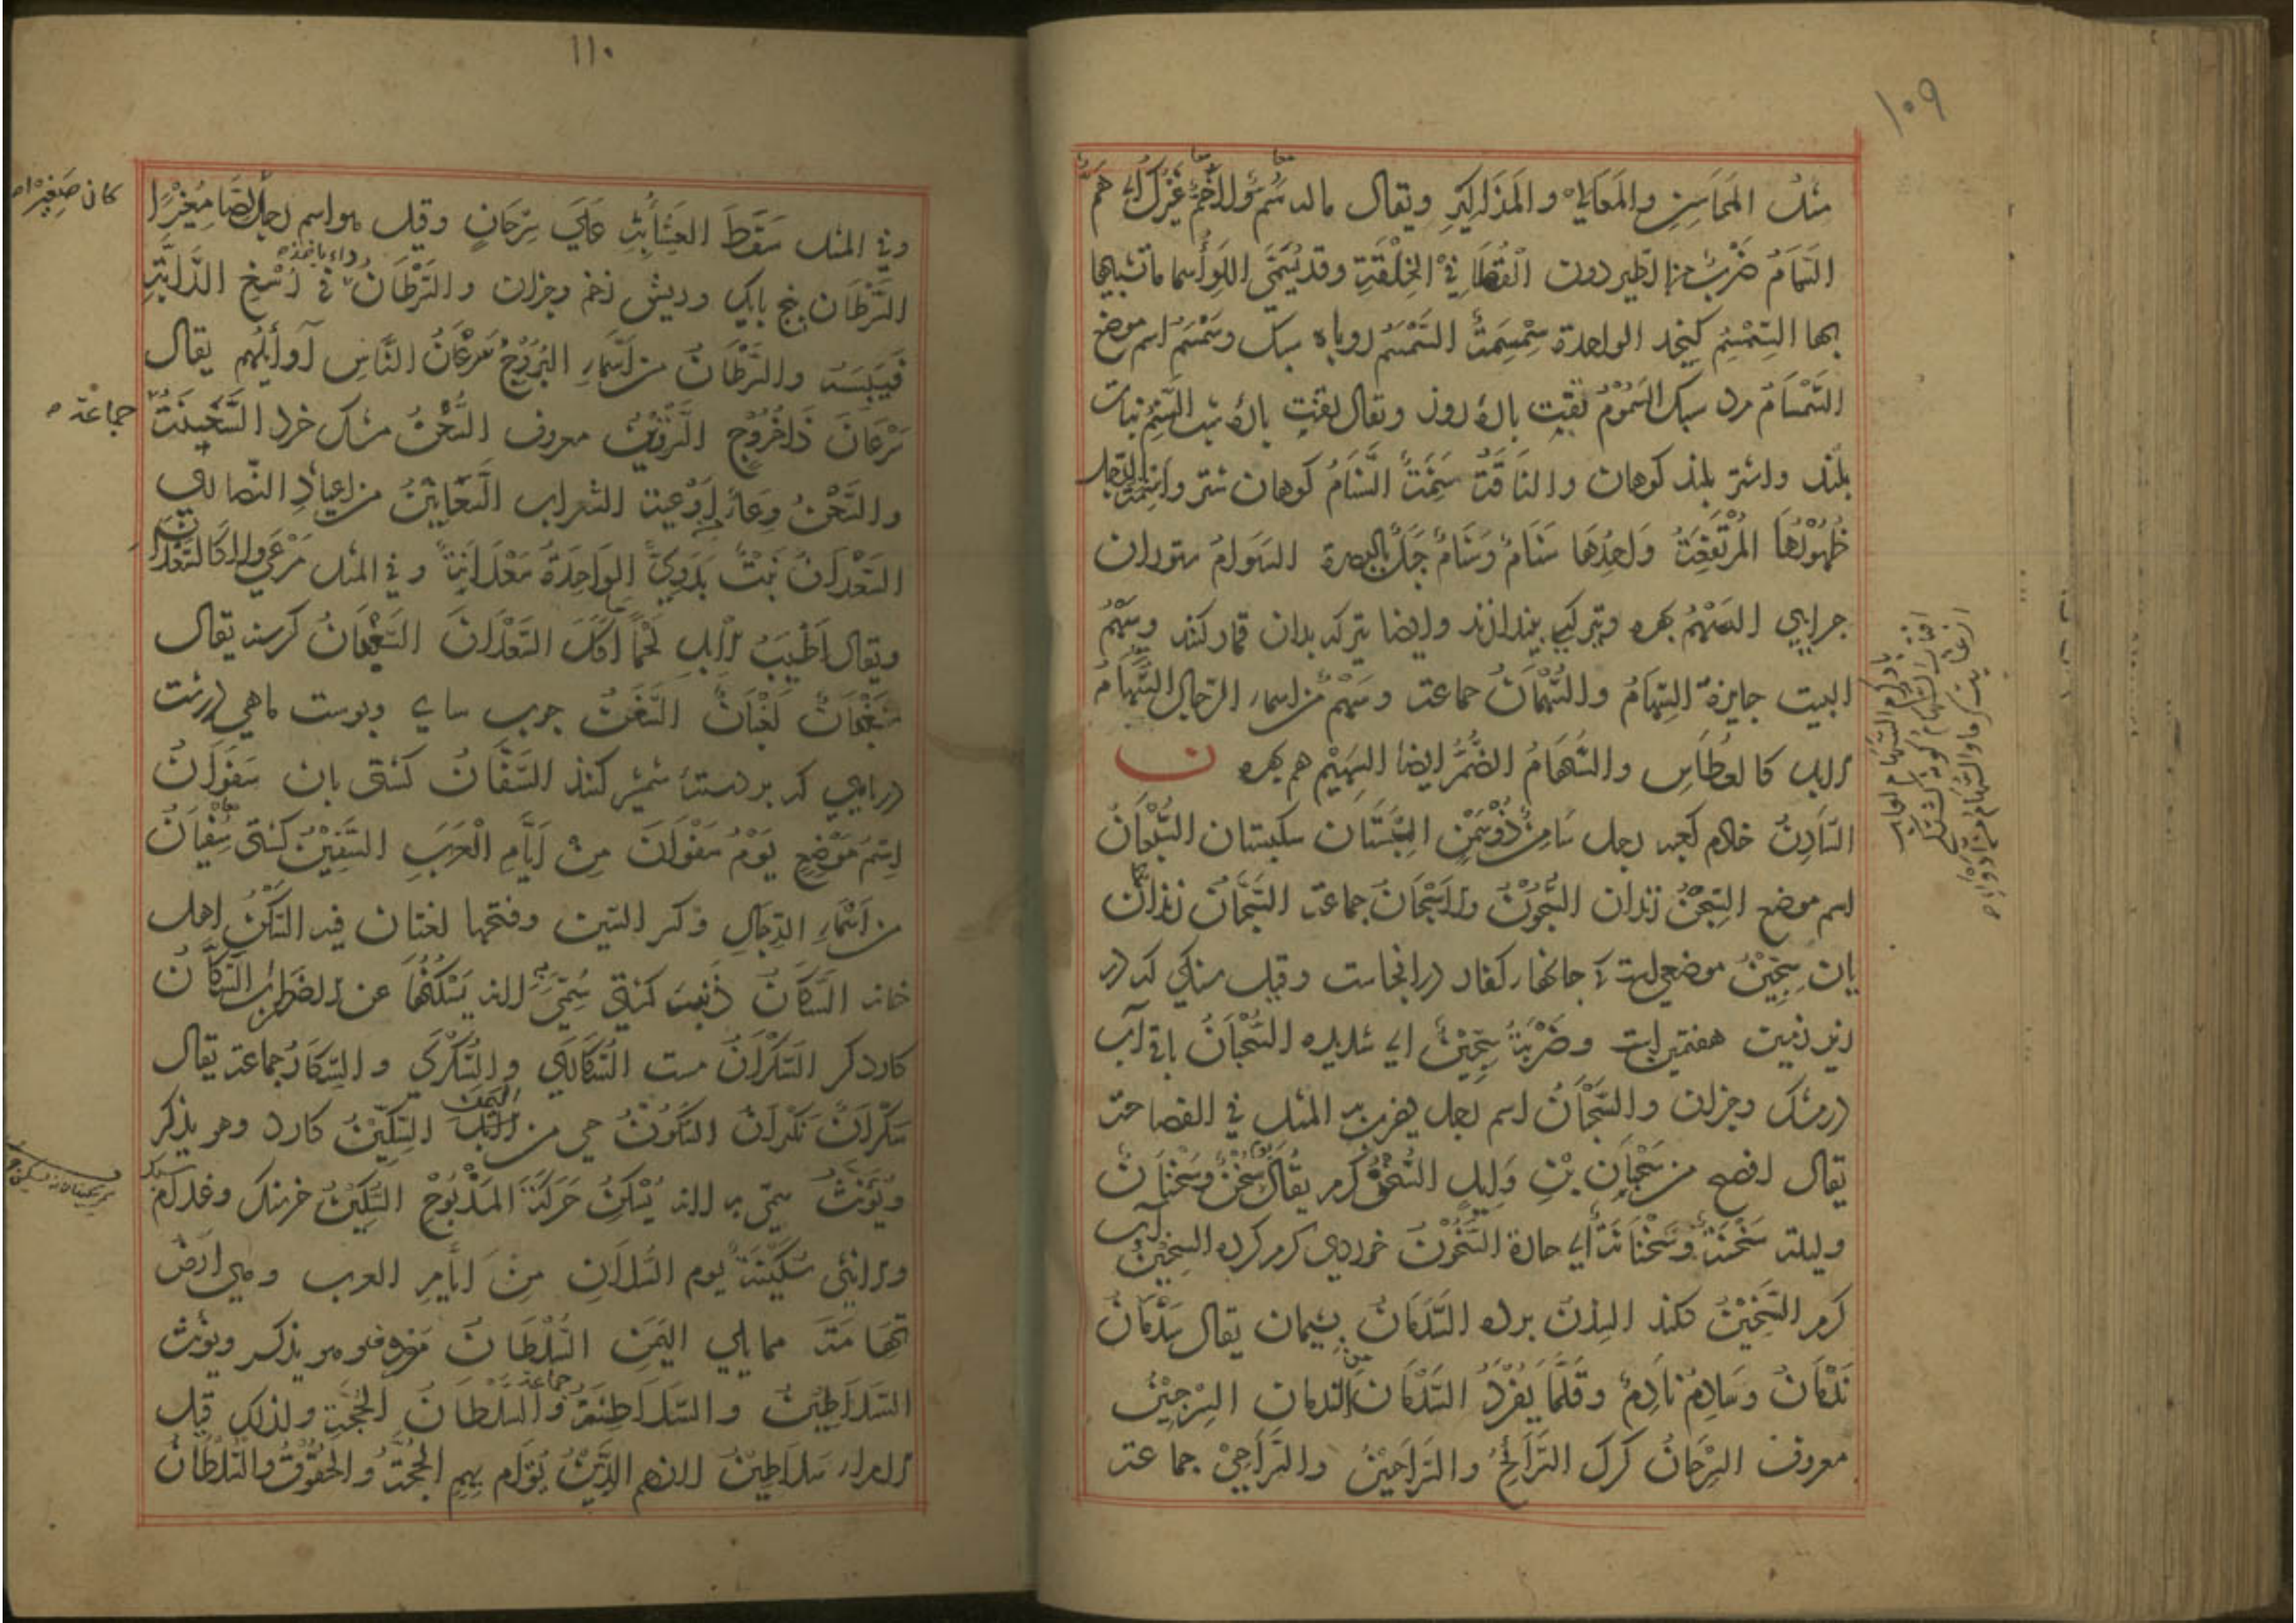 ۱۰۹
مثل المحاسن والمعالي والمذاكير ويقال ماله سم ولا حم غيرك اي هم
السمام ضرب من الطير دون القطا في الخلقة وقد يسمى اللواء سماما تشبيها
بها السمسم كنجد الواحدة سمسمة السمسم روباه سبك وسمسم اسم موضع
السمسام مرد سبك السموم تفت باد روز ويقال تفت باد شب السنم نبات
بلند واشتر بلند كوهان والناقة سنمة السنام كوهان شتر واسنمة الرمل
ظهورها المرتفعة واحدها سنام وسنام جبل بالبصرة السوام ستوران
جرايي السهم بهره وتير كه بيندازند وايضا تير كه بدان قمار كنند وسهم
البيت جايزة السهام والسهمان جماعة وسهم من اسماء الرجال السهام
الابل كالعطاس والسهام الضمر ايضا السهيم هم بهره ن
السادن خادم كعبه رجل سامن ذو سمن السبستان سكبستان السبعان
اسم موضع السجن زندان السجون والاسجان جماعة السجان زندان
بان سجين موضعي است كه جانهاء كفار در انجاست وقيل سنكي كه در
زير زمين هفتمين است وضربة سجين اي شديده السحبان باقي آب
در مشك وجزان والسحبان اسم رجل يضرب به المثل في الفصاحة
يقال افصح من سحبان بن وايل السخن كرم يقال يوم سخن وسخنان
وليلة سخنة وسخنانة اي حارة السخون خوردي كرم كرده السخين آب
كرم السخين كلند السدن برده السدمان پشيمان يقال سدمان
ندمان وسادم نادم وقلما يفرد السدمان من الندمان السرجين
معروف السرحان كرك السراح والسراحين والسراحي جماعة
از غاية كرما والسهام
۱۱۰
وفي المثل سقط العشاء به على سرحان وقيل هو اسم رجل لصا مغيرا
السرطان پنج پايك وريش زخم وجزان والسرطان داء ياخذه في رسغ الدابة
فييبسه والسرطان من اسماء البروج سرعان الناس اوايلهم يقال
سرعان ذا خروج السرقين معروف السعن مشك خرد السخينة
والسعن وعاء من اوعية الشراب السعانين من اعياد النصاري
السعدان نبت بدوي الواحدة سعدانة وفي المثل مرعى ولا كالسعدان
ويقال اطيب الابل لحما ما اكل السعدان السغبان كرسنه يقال
سغبان لغبان السفن چوب ساي وپوست ماهي درشت
دريايي كه بر دسته شمشير كنند السفان كشتي بان سفوان
اسم موضع يوم سفوان من ايام العرب السفين كشتي سفيان
من اسماء الرجال وكسر السين وفتحها لغتان فيه السكن اهل
خانه السكان ذنب كشتي سمي به لانه يسكنها عن الاضطراب السكان
كاردكر السكران مست السكارى والسكرى والسكار جماعة يقال
سكران نكران السكون حي من اليمن السكين كارد وهو يذكر
ويؤنث سمي به لانه يسكن حركة المذبوح السكين خر سبك وغلام
والانثى سكينة يوم السلان من ايام العرب وهي ارض
تهامة مما يلي اليمن السلطان معروف وهو يذكر ويؤنث
السلاطين والسلاطنة جماعة والسلطان الحجة ولذلك قيل
للامراء سلاطين لانهم الذين يقام بهم الحجة والحقوق والسلطان
كان صغيرا
جماعة